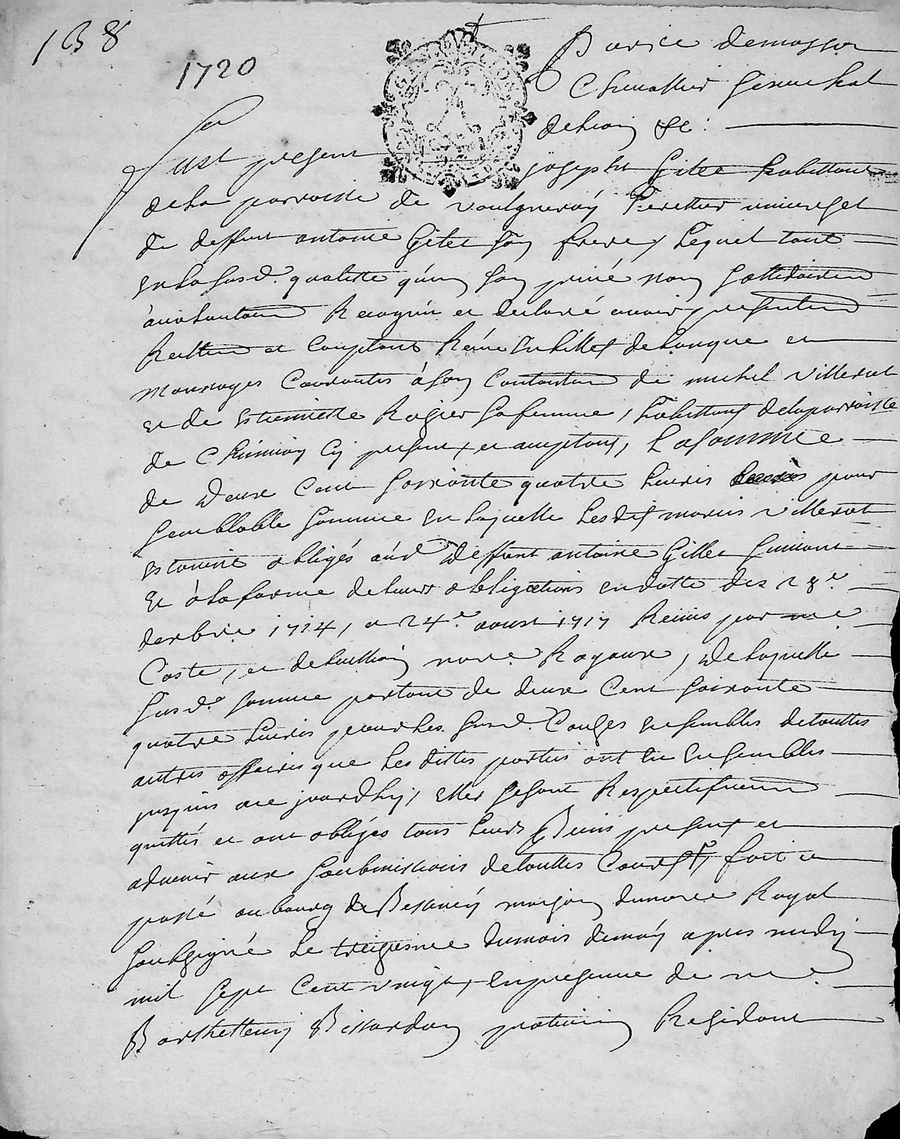 138
1720
Chevallier Senechal
de Lion &c:
Fust present joseph Gilee habittant
de la parroisse de vaulgneray heretier universel
de deffunt antoine Gilee son frere, Lequel tant
en la susd. qualitte qu'en son privé nom
Recognu et declaré avoir
Reellem et comptant Reçeu en billet de banque et
monoyes Courantes à son Contantem de michel villerat
et de estiennette Rogier sa femme, habittans de la parroisse
de ci presant et acceptans, La somme
de deux cent soixante quatre livres pour
semblable somme en laquelle lesdit mariés villerat
estoient obligés aud. deffunt antoine Gillee suivant
et à la forme de leurs obligations en datte des 28e
1714, et 24e aoust 1717 Reçeus par me
Coste, et de nore Royaux, de laquelle
susd. somme portant de deux Cent soixante
quatre livres pour les Causes ensembles de touttes
autres affaires que les dittes parties ont eu ensembles
jusques a ce jourdhuy, elles se sont Respectivem
quittés et ont obligés tous leurs Biens presant et
advenir aux soubmissions de touttes Cours, fait et
passé au bourg de Bessenay maison du nore Royal
soubsigné le treiziesme du mois de may apres midy
mil sept cent vingt, en presence de me
Barthellemy Bissardon praticien Residant